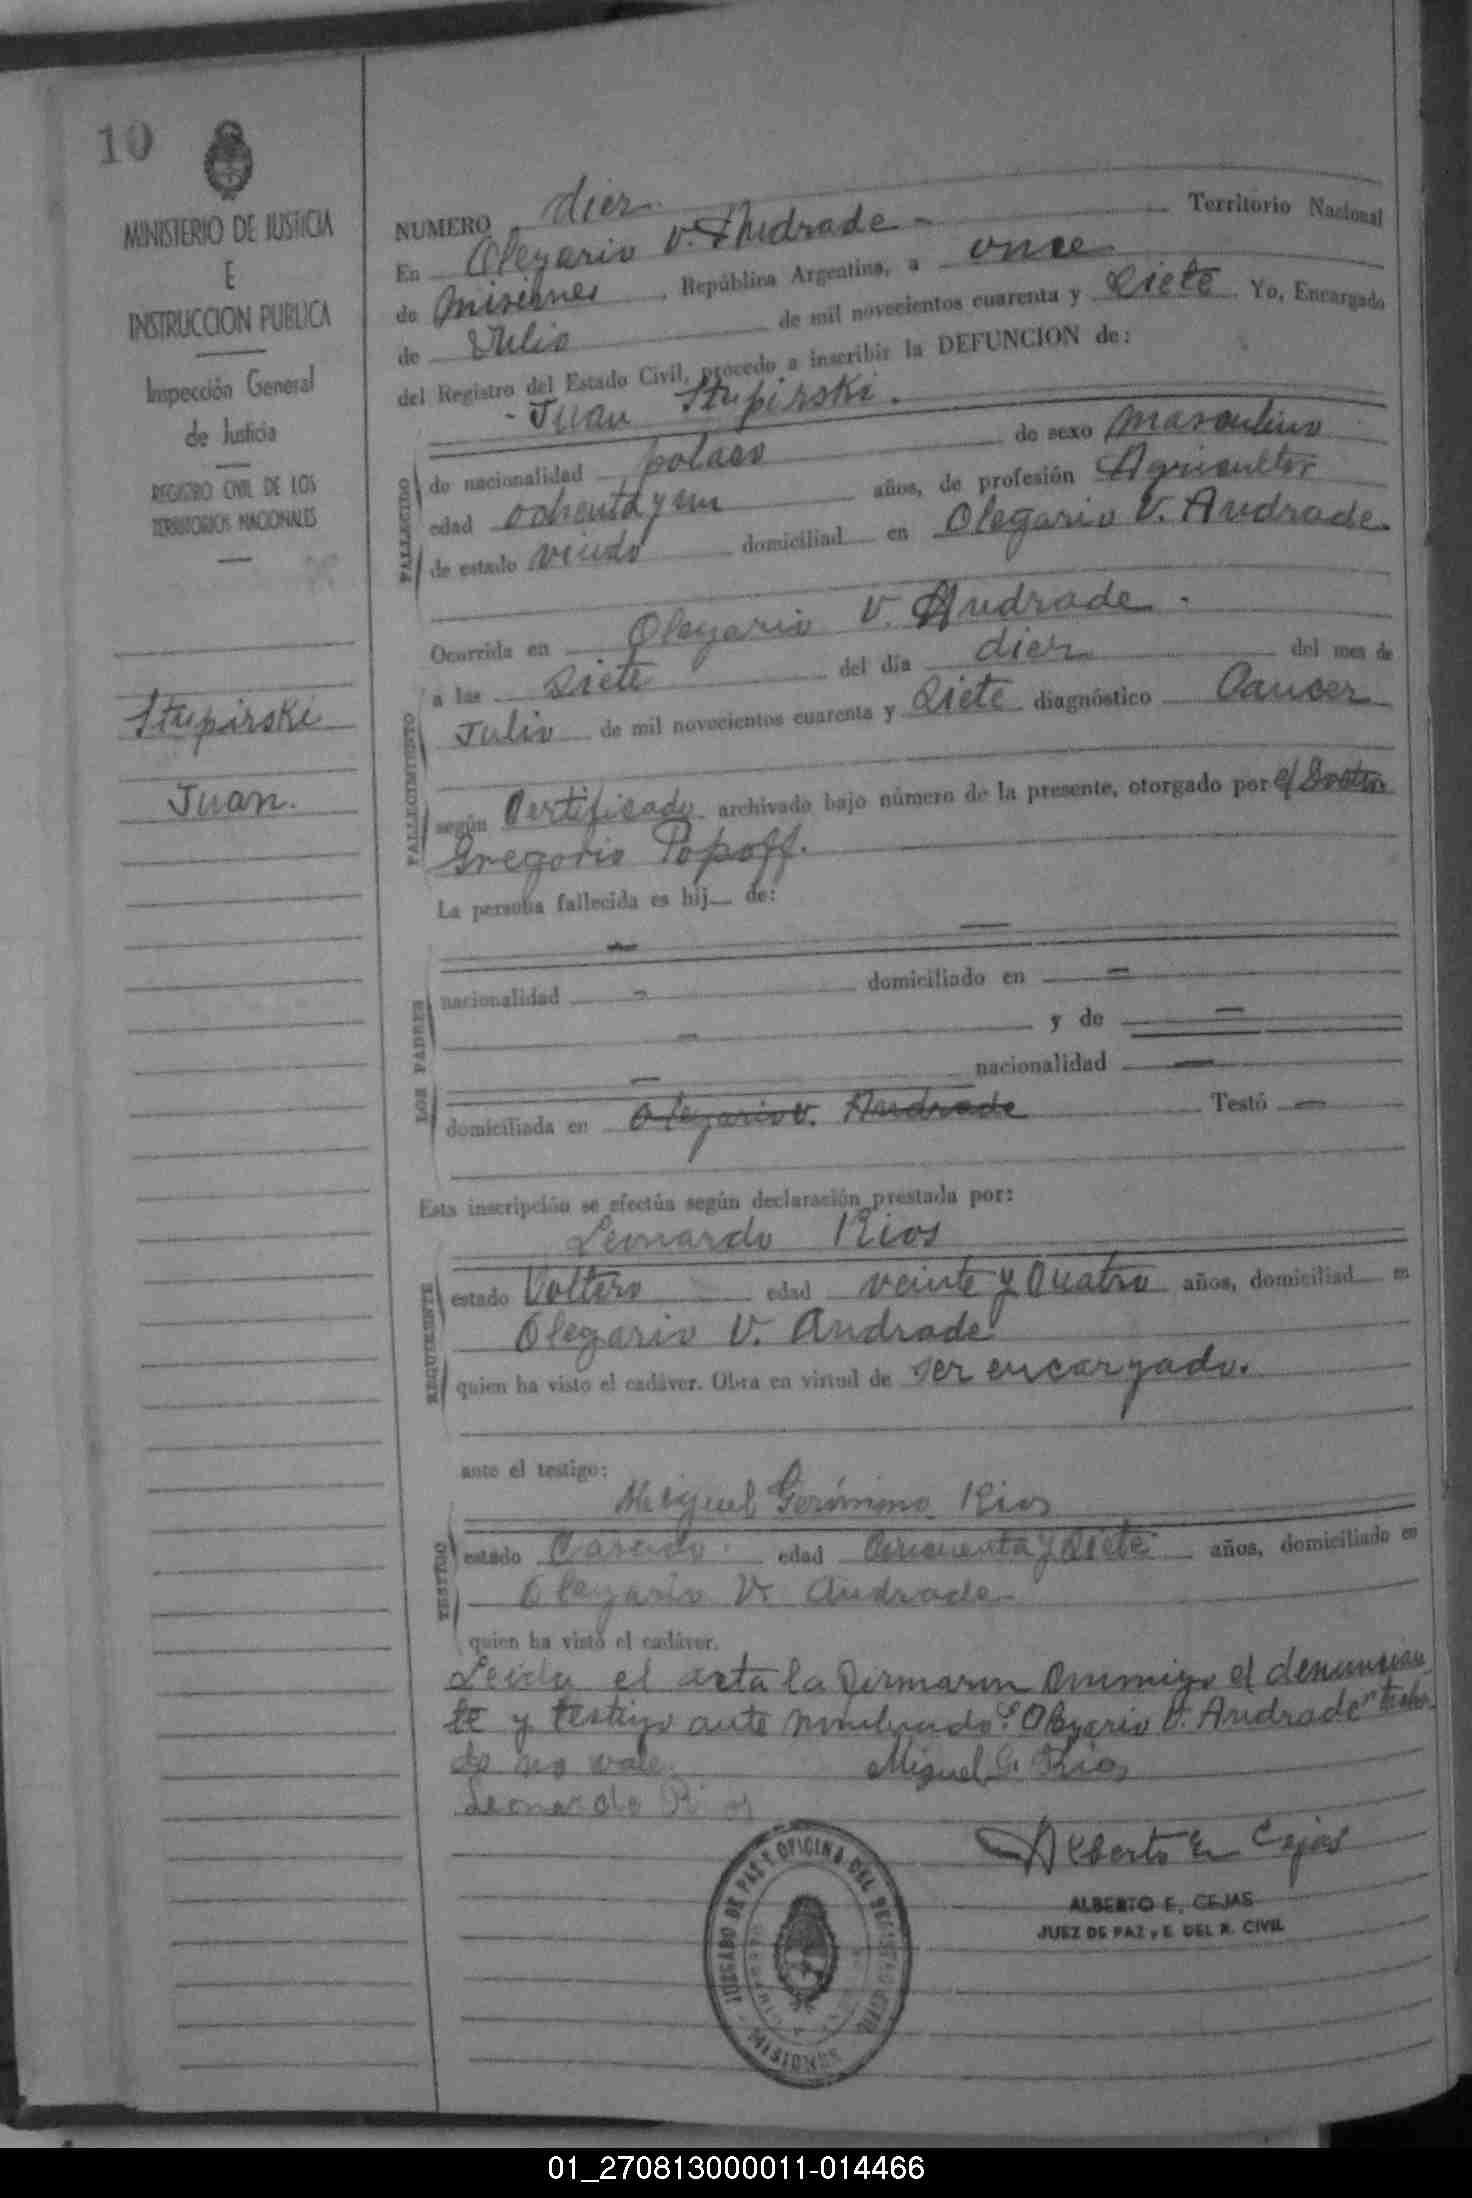 10
MINISTERIO DE JUSTICIA
E
INSTRUCCION PUBLICA
Inspección General
de Justicia
REGISTRO CIVIL DE LOS
TERRITORIOS NACIONALES
Stupirski
Juan.
NUMERO diez
En Olegario V. Andrade - Territorio Nacional
de Misiones, República Argentina, a once
de Julio de mil novecientos cuarenta y siete Yo, Encargado
del Registro del Estado Civil, procedo a inscribir la DEFUNCION de:
- Juan Stupirski.
FALLECIDO
de nacionalidad polaco de sexo masculino
edad ochenta y un años, de profesión Agricultor
de estado viudo domiciliad en Olegario V. Andrade.
FALLECIMIENTO
Ocurrida en Olegario V. Andrade.
a las siete del día diez del mes de
Julio de mil novecientos cuarenta y siete diagnóstico Cancer
según Certificado archivado bajo número de la presente, otorgado por el Doctor
Gregorio Popoff.
La persona fallecida es hij de:
LOS PADRES
nacionalidad - domiciliado en -
- y de -
- nacionalidad -
domiciliada en Olegario V. Andrade Testó -
Esta inscripción se efectúa según declaración prestada por:
REQUIRENTE
Leonardo Rios
estado Soltero edad veinte y Quatro años, domiciliad en
Olegario V. Andrade
quien ha visto el cadáver. Obra en virtud de ser encargado.
ante el testigo:
TESTIGO
Miguel Gerónimo Rios
estado Casado edad Cincuenta y siete años, domiciliado en
Olegario V. Andrade
quien ha visto el cadáver.
Leida el acta la firmaron conmigo el denuncian
te y testigo ante nombrado: "Olegario V. Andrade" testa-
do no vale.
Miguel G. Rios
Leonardo Rios
Alberto E. Cejas
ALBERTO E. CEJAS
JUEZ DE PAZ y E. DEL R. CIVIL
JUZGADO DE PAZ Y OFICINA DEL REGISTRO CIVIL
MISIONES
01_270813000011-014466